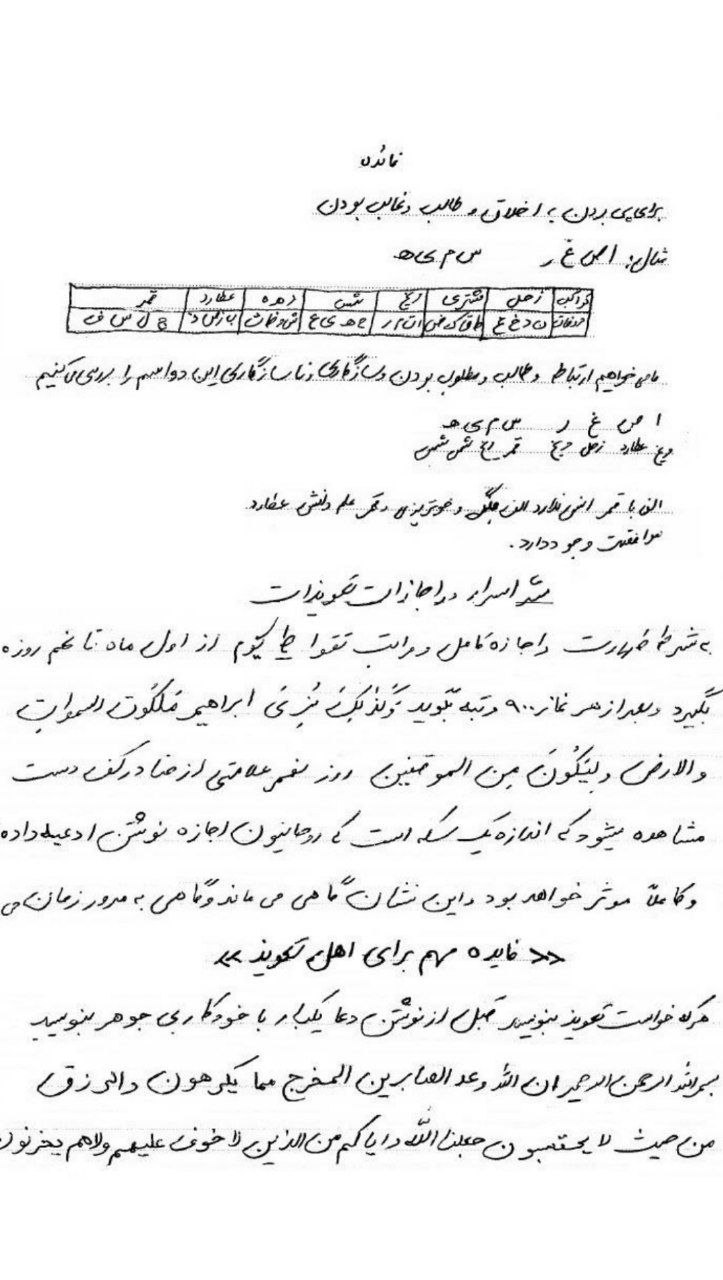 فائده
برای پی بردن به اخلاق و طالب و غالب بودن
مثال: اص غ ر س م ی ه
کواکب زحل مشتری مریخ شمس زهره عطارد قمر
ما می خواهیم ارتباط و طالب و مطلوب بودن و سازگاری و ناسازگاری این دو اسم را بررسی می کنیم
ا ص غ ر س م ی ه
مریخ عطارد زحل مریخ قمر مریخ شمس شمس
الف با قمر انس ندارد الف جنگ و خونریزی و قمر علم و دانش عطارد
موافقت وجود دارد.
اسرار و اجازات تعویذات
به شرط طهارت و اجازه کامل و مراتب تقوا از اول ماه تا نهم روزه
بگیرد و بعد از هر نماز ۹۰۰ مرتبه بگوید وَکَذٰلِکَ نُرِیَ ابراهیم مَلَکُوت السموات
والارض وَلِیَکُونَ مِن الموقنین روز نهم علامتی از حنا در کف دست
مشاهده میشود که اندازه یک سکه است که روحانیون اجازه نوشتن ادعیه داده
و کاملاً موثر خواهد بود و این نشان گاهی می ماند و گاهی به مرور زمان می
<< فایده مهم برای اهل تعویذ >>
هرکه خواست تعویذ بنویسد قبل از نوشتن دعا یکبار با خودکاری جوهر بنویسد
بسم الله الرحمن الرحیم ان الله وعد الصابرین المخرج مما یکرهون والرزق
من حیث لا یحتسبون جعلنا الله وایاکم من الذین لا خوف علیهم ولاهم یحزنون